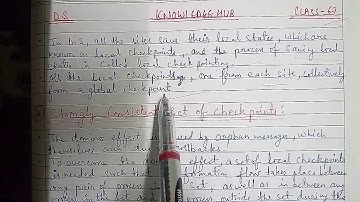 D.S KNOWLEDGE HUB CLASS-69
In D.S, all the sites save their local states, which are
known as local checkpoints, and the process of saving local
states is called local checkpointing.
All the local checkpoints, one from each site, collectively
form a global checkpoint.
Strongly consistent set of checkpoints:
The domino effect is caused by orphan messages, which
therefore are due to rollbacks.
To overcome the domino effect, a set of local checkpoints
is needed such that no information flow takes place between
any pair of process in the set, as well as in between any
process in the set and any process outside the set during the